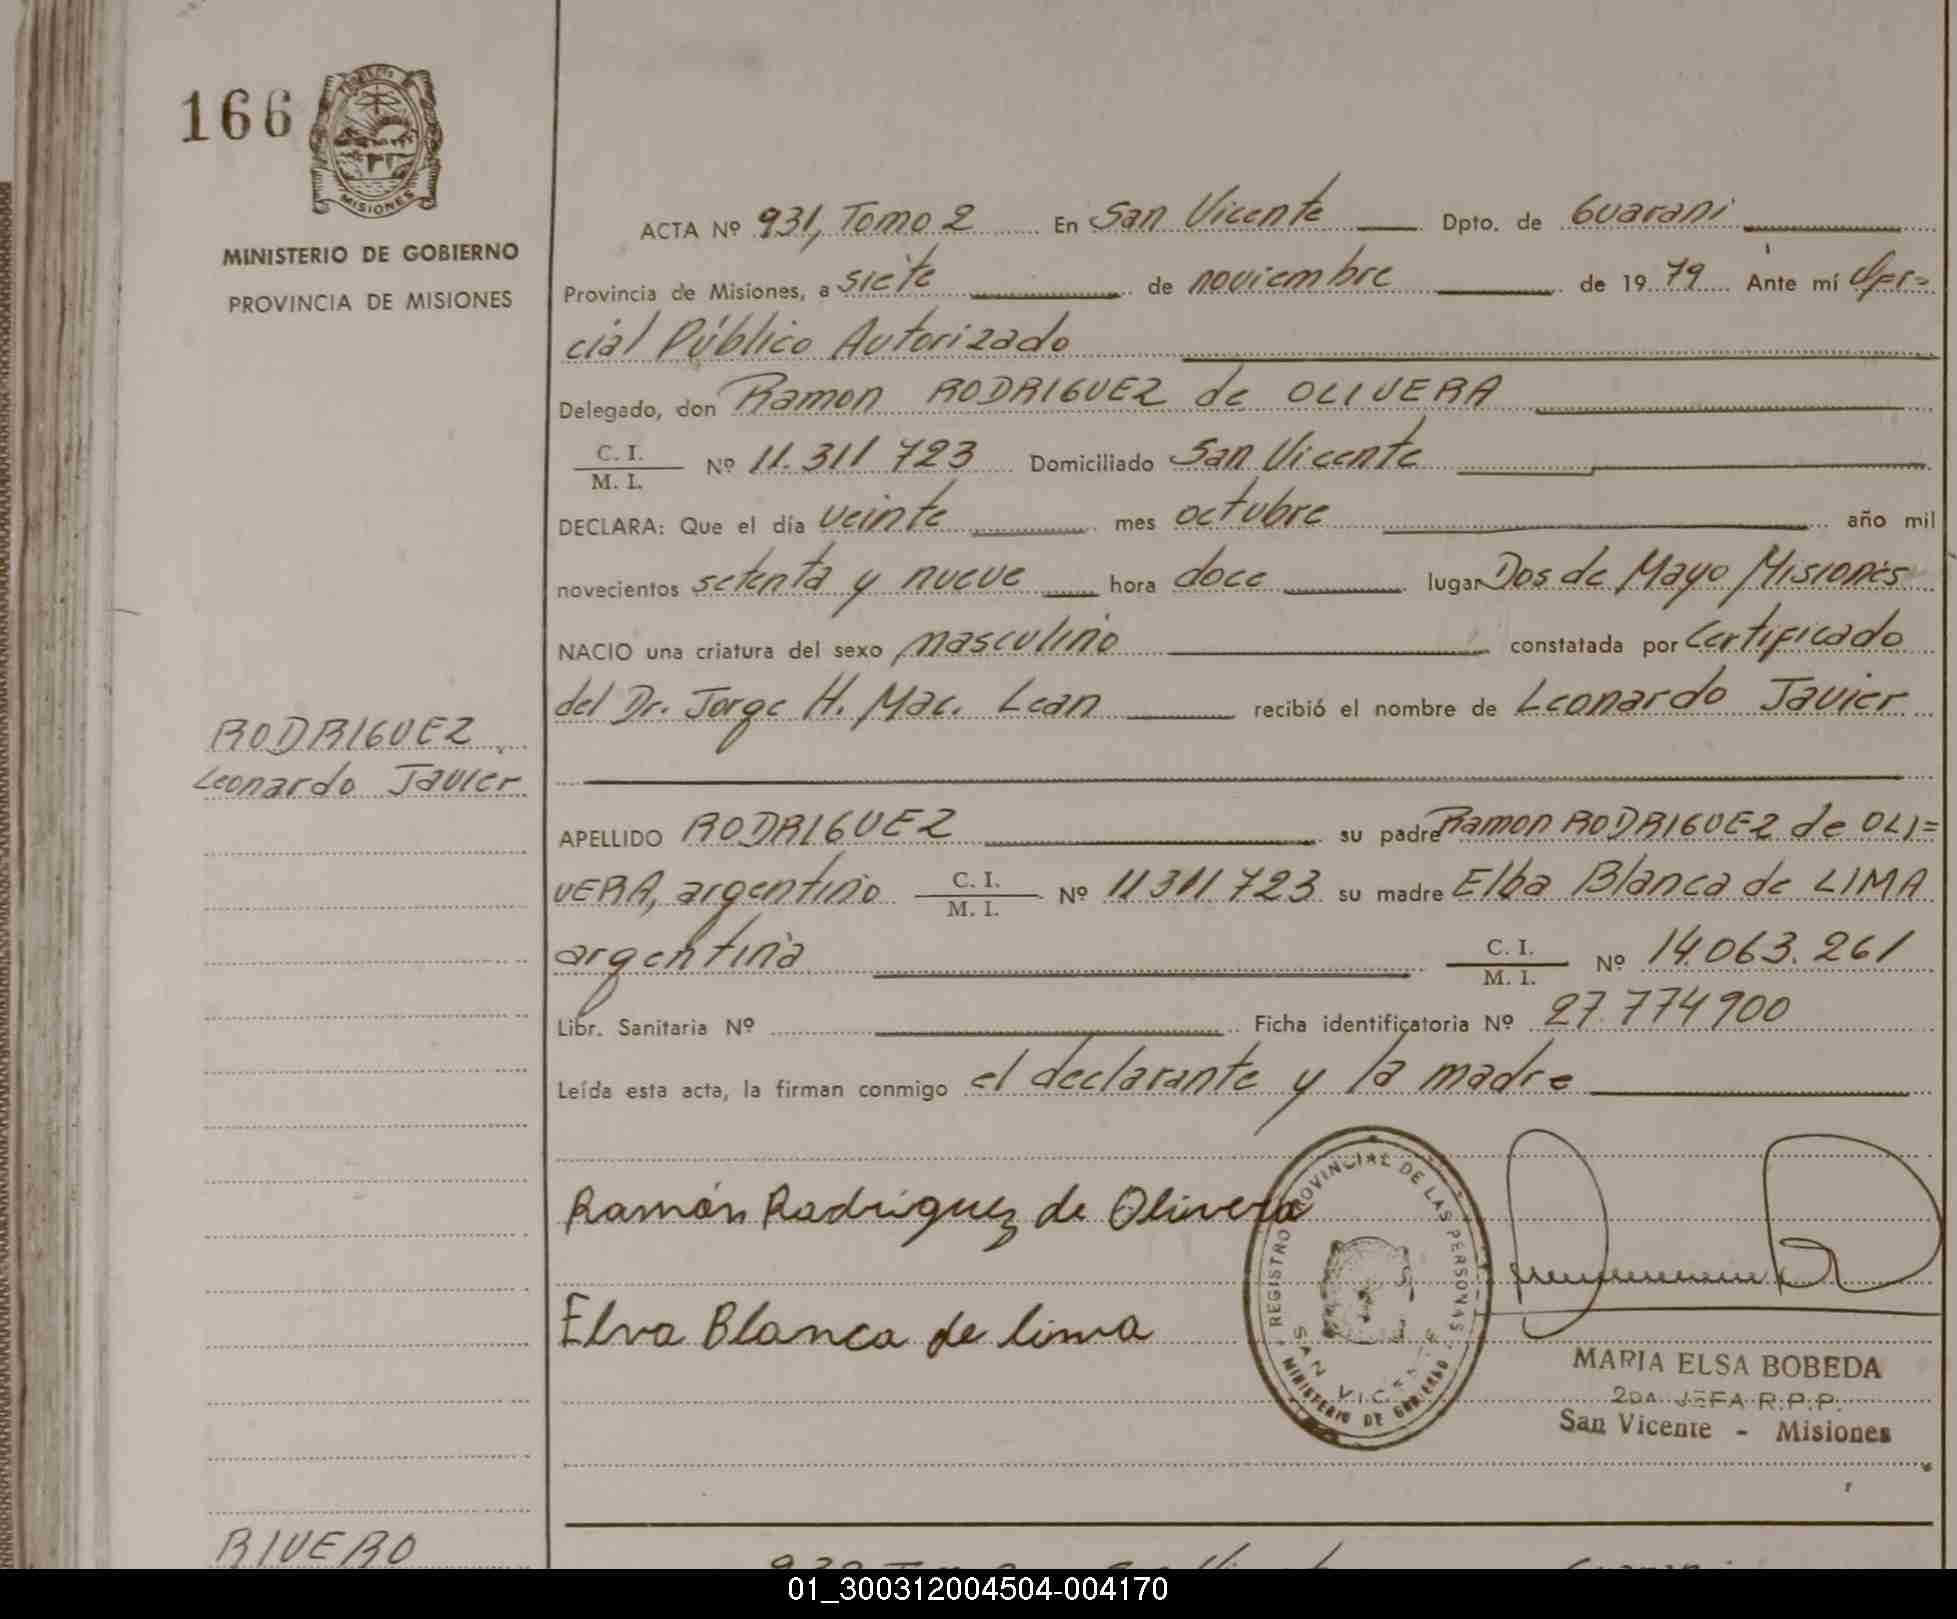 166
MISIONES
MINISTERIO DE GOBIERNO
PROVINCIA DE MISIONES
RODRIGUEZ
Leonardo Javier
ACTA Nº 931, Tomo 2 En San Vicente Dpto. de Guarani
Provincia de Misiones, a siete de noviembre de 1979 Ante mí Ofi=
cial Público Autorizado
Delegado, don Ramon RODRIGUEZ de OLIVERA
C. I.
M. I. Nº 11.311 723 Domiciliado San Vicente
DECLARA: Que el día veinte mes octubre año mil
novecientos setenta y nueve hora doce lugar Dos de Mayo Misiones
NACIO una criatura del sexo masculino constatada por Certificado
del Dr. Jorge H. Mac. Lean recibió el nombre de Leonardo Javier
APELLIDO RODRIGUEZ su padre Ramon RODRIGUEZ de OLI=
VERA, argentino C. I. M. I. Nº 11 311.723 su madre Elba Blanca de LIMA
argentina C. I. M. I. Nº 14.063.261
Libr. Sanitaria Nº Ficha identificatoria Nº 27.774900
Leída esta acta, la firman conmigo el declarante y la madre
Ramón Rodriguez de Olivera
Elva Blanca de lima
REGISTRO PROVINCIAL DE LAS PERSONAS
SAN VICENTE
MINISTERIO DE GOBIERNO
MARIA ELSA BOBEDA
2DA JEFA R.P.P.
San Vicente - Misiones
RIVERO
01_300312004504-004170